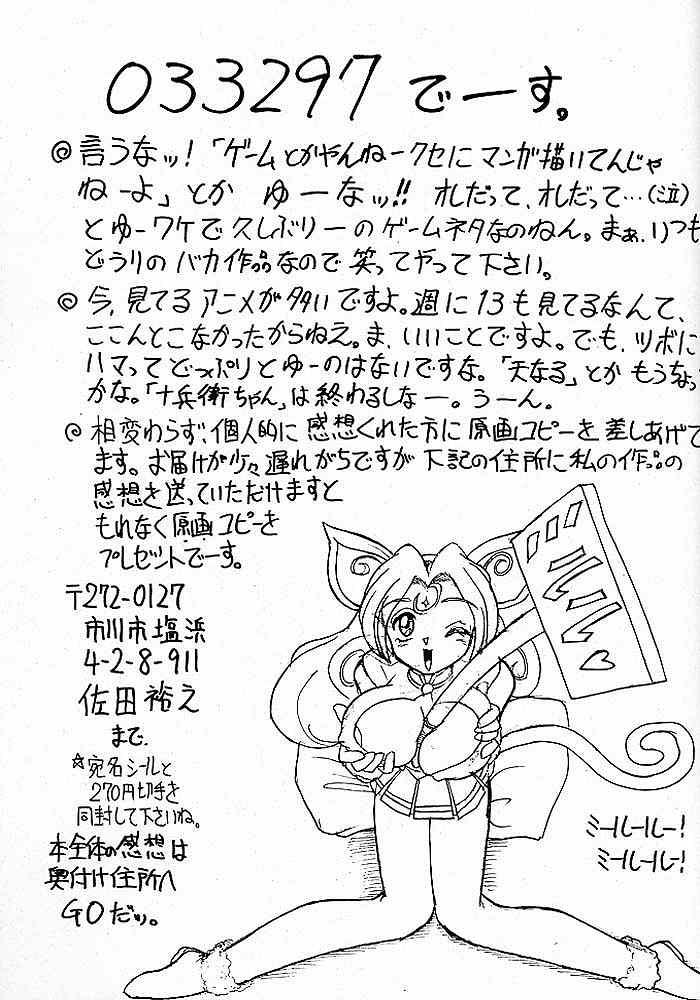 033297 でーす。
◎言うなッ!「ゲームとかやんねークセにマンガ描いてんじゃ
ねーよ」とか ゆーなッ!! オレだって、オレだって…(泣)
とゆーワケで久しぶりーのゲームネタなのねん。まぁ、いつも
どうりのバカ作品なので笑ってやって下さい。
◎今、見てるアニメが多いですよ。週に13も見てるなんて、
ここんとこなかったからねえ。ま、いいことですよ。でも、ツボに
ハマってどっぷりとゆーのはないですな。「天なる」とかもうちょい
かな。「十兵衛ちゃん」は終わるしなー。うーん。
◎相変わらず、個人的に感想くれた方に原画コピーを差しあげて
ます。お届けが少々遅れがちですが下記の住所に私の作品の
感想を送っていただけますと
もれなく原画コピーを
プレゼントでーす。
〒272-0127
市川市塩浜
4-2-8-911
佐田裕之
まで、
☆宛名シールと
270円切手を
同封して下さいね。
本全体の感想は
奥付け住所へ
GOだッ。
ドルル♡
ミールールー!
ミールール!